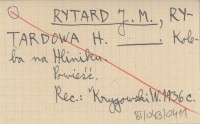 RYTARD J. M., RY-
TARDOWA H. ____: Kole-
ba na Hliniku.
Powieść.
Rec.: Krygowski W. 1936 c.
BI/043/0411